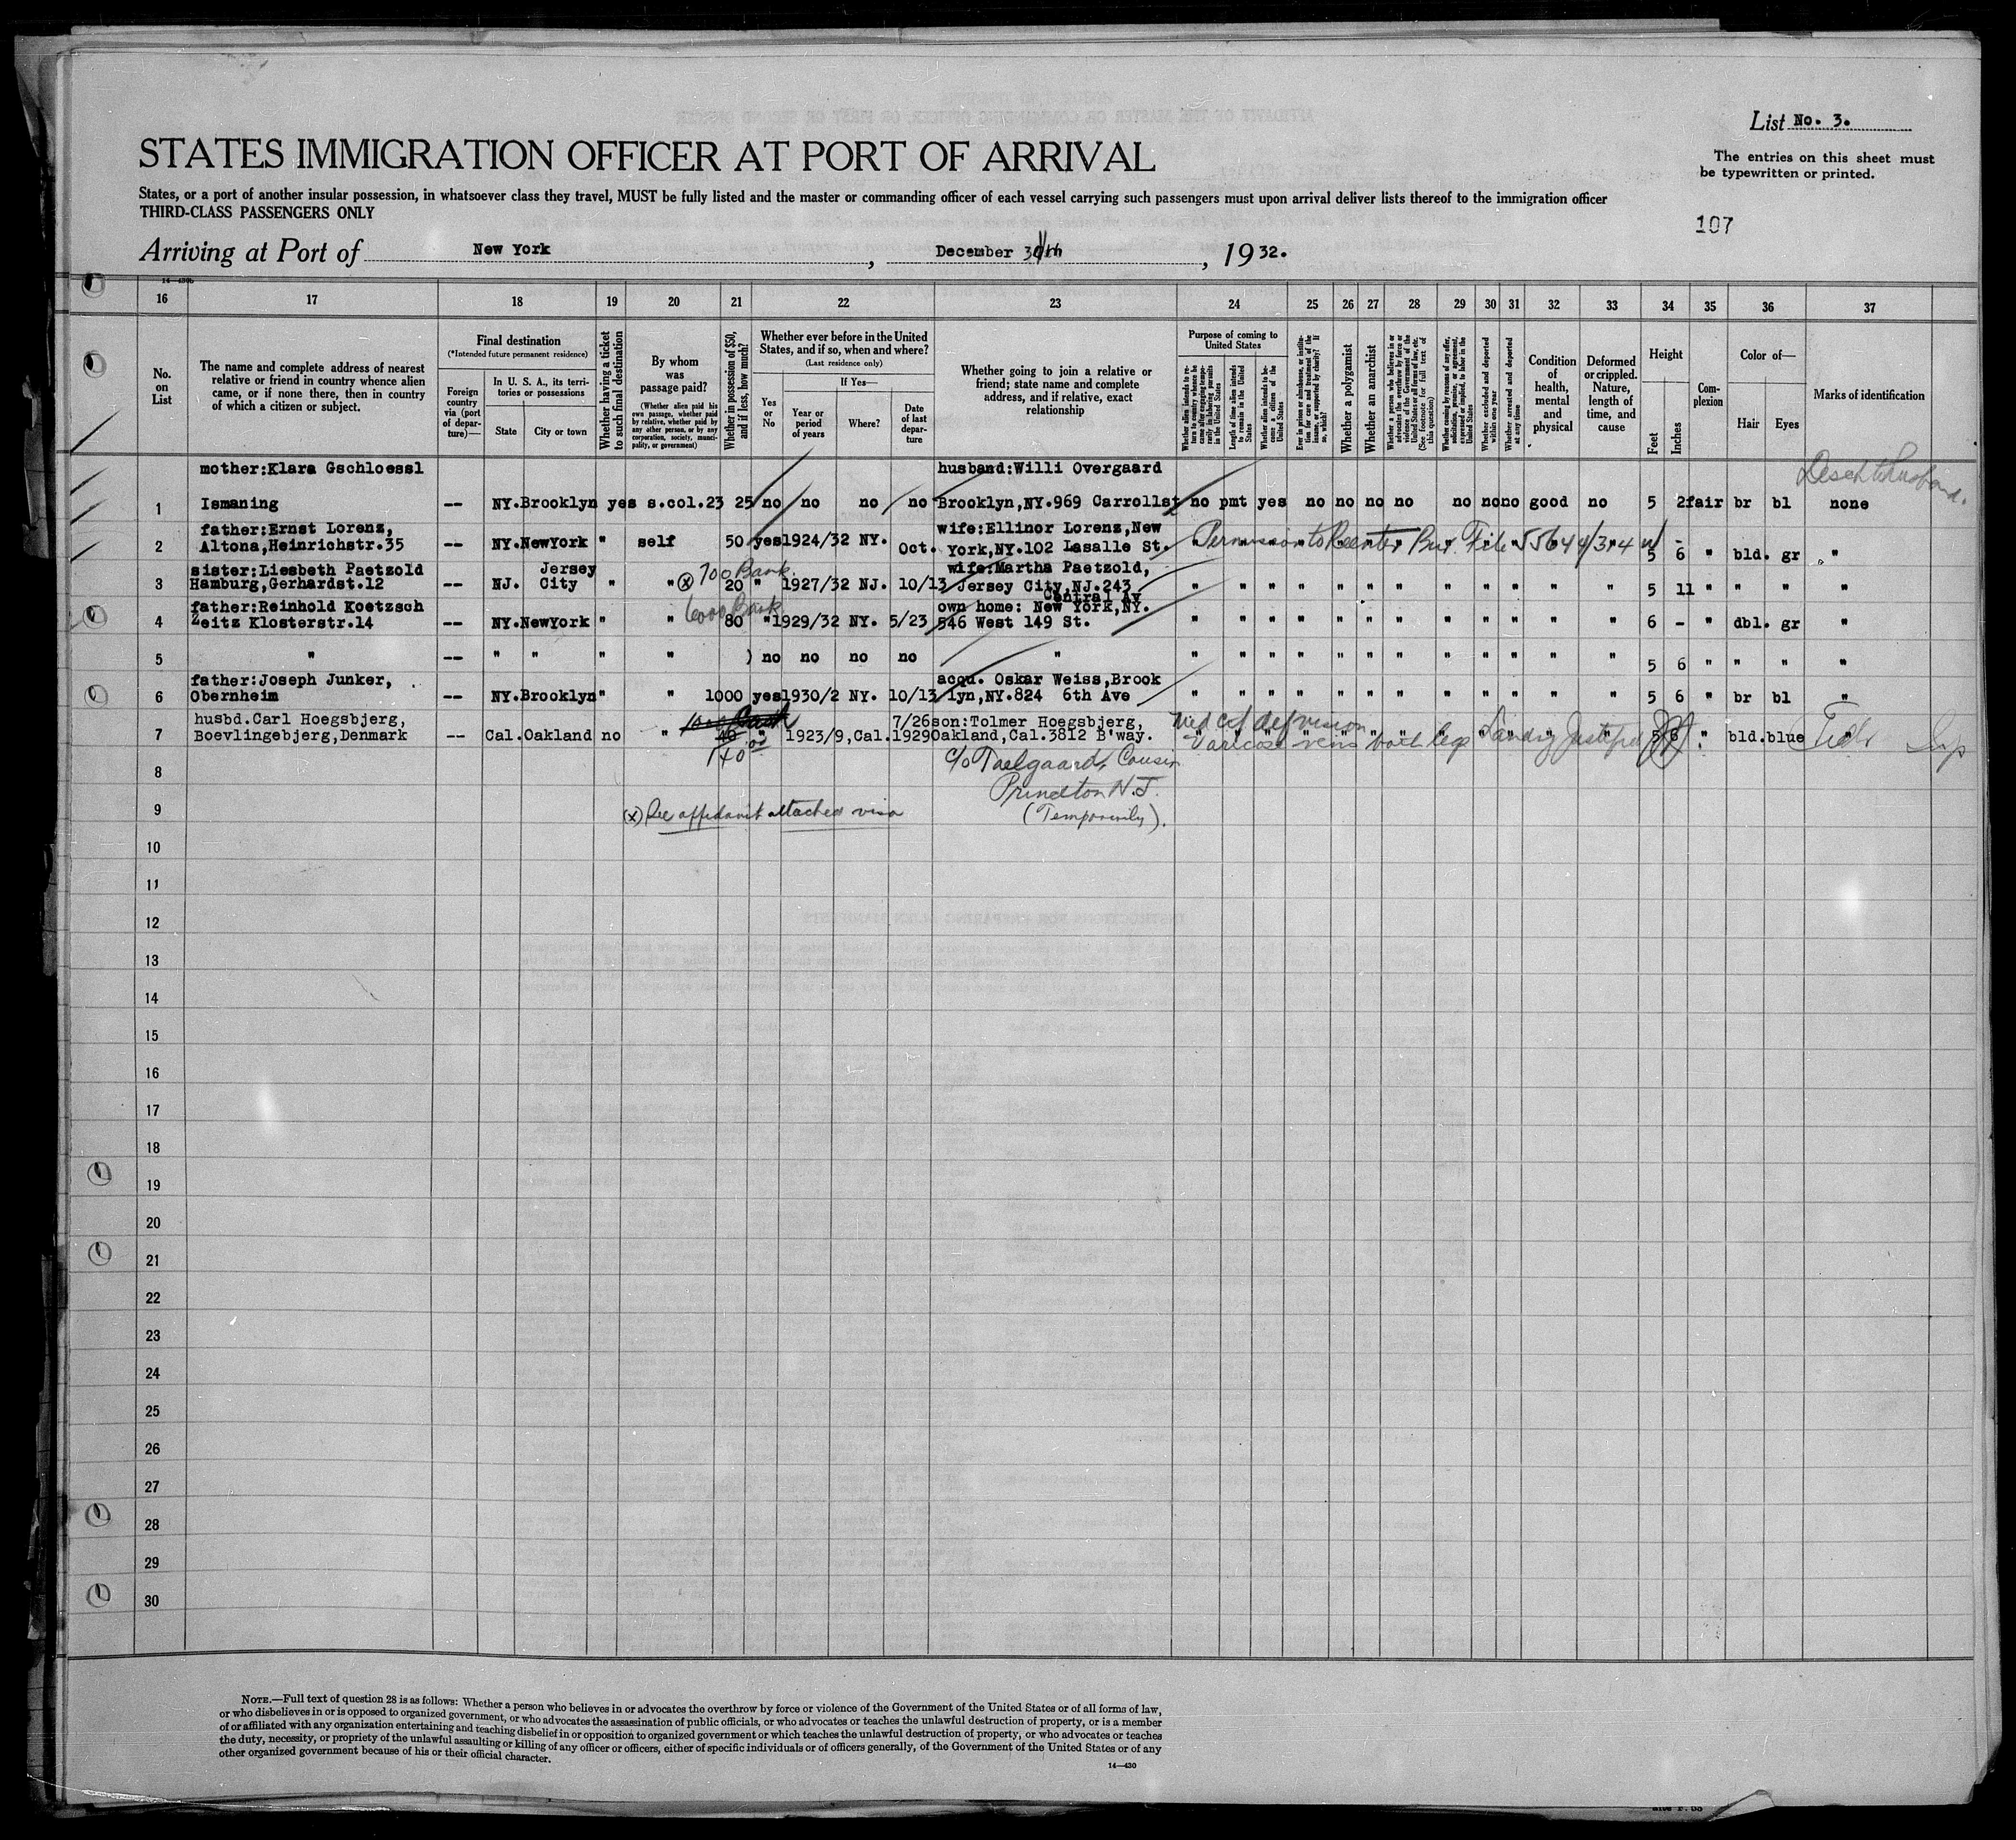 List No. 3.
STATES IMMIGRATION OFFICER AT PORT OF ARRIVAL
The entries on this sheet must
be typewritten or printed.
States, or a port of another insular possession, in whatsoever class they travel, MUST be fully listed and the master or commanding officer of each vessel carrying such passengers must upon arrival deliver lists thereof to the immigration officer
THIRD-CLASS PASSENGERS ONLY
107
Arriving at Port of New York, December 30th, 1932.
16 17 18 19 20 21 22 23 24 25 26 27 28 29 30 31 32 33 34 35 36 37
No. on List
The name and complete address of nearest
relative or friend in country whence alien
came, or if none there, then in country
of which a citizen or subject.
Final destination
(*Intended future permanent residence)
Foreign country via (port of departure)—
In U. S. A., its territories or possessions
State
City or town
Whether having a ticket to such final destination
By whom was passage paid?
(Whether alien paid his own passage, whether paid by relative, whether paid by any other person, or by any corporation, society, municipality, or government)
Whether in possession of $50, and if less, how much?
Whether ever before in the United
States, and if so, when and where?
(Last residence only)
Yes or No
If Yes—
Year or period of years
Where?
Date of last departure
Whether going to join a relative or
friend; state name and complete
address, and if relative, exact
relationship
Purpose of coming to
United States
Length of time alien intends to remain in the United States
Whether alien intends to become a citizen of the United States
Whether a polygamist
Whether an anarchist
Whether excluded and deported within one year
Whether arrested and deported at any time
Condition of health, mental and physical
Deformed or crippled. Nature, length of time, and cause
Height
Feet
Inches
Complexion
Color of—
Hair
Eyes
Marks of identification
mother:Klara Gschloessl husband:Willi Overgaard
1 Ismaning -- NY.Brooklyn yes s.col.23 25 no no no no Brooklyn,NY.969 Carrollst no pmt yes no no no no no no no good no 5 2 fair br bl none
father:Ernst Lorenz, wife:Ellinor Lorenz,New
2 Altona,Heinrichstr.35 -- NY.NewYork " self 50 yes 1924/32 NY. Oct. York,NY.102 Lasalle St. Permission to Reenter Bur. File 5 6 " bld. gr "
sister:Liesbeth Paetzold Jersey 700 Bank wife:Martha Paetzold,
3 Hamburg,Gerhardst.12 -- NJ. City " " (x) 20 " 1927/32 NJ. 10/13 Jersey City,NJ.243 " " " " " " " " " " " " 5 11 " " " "
Central Av
father:Reinhold Koetzsch 6000 Bank own home: New York,NY.
4 Zeitz Klosterstr.14 -- NY.NewYork " " 80 " 1929/32 NY. 5/23 546 West 149 St. " " " " " " " " " " " " 6 - " dbl. gr "
5 " -- " " " " ) no no no no " " " " " " " " " " " " " 5 6 " " " "
father:Joseph Junker, acqu. Oskar Weiss,Brook
6 Obernheim -- NY.Brooklyn " " 1000 yes 1930/2 NY. 10/13 lyn,NY.824 6th Ave " " " " " " " " " " " " 5 6 " br bl "
husbd.Carl Hoegsbjerg, 7/26 son:Tolmer Hoegsbjerg, Med cf def vision
7 Boevlingebjerg,Denmark -- Cal.Oakland no " " 1923/9,Cal.1929 Oakland,Cal.3812 B'way. Varicose veins both legs " bld.blue
140
8 c/o Toelgaard, Cousin
Princeton N.J.
9 (x) See affidavit attached visa (Temporarily).
10
11
12
13
14
15
16
17
18
19
20
21
22
23
24
25
26
27
28
29
30
NOTE.—Full text of question 28 is as follows: Whether a person who believes in or advocates the overthrow by force or violence of the Government of the United States or of all forms of law,
or who disbelieves in or is opposed to organized government, or who advocates the assassination of public officials, or who advocates or teaches the unlawful destruction of property, or is a member
of or affiliated with any organization entertaining and teaching disbelief in or opposition to organized government or which teaches the unlawful destruction of property, or who advocates or teaches
the duty, necessity, or propriety of the unlawful assaulting or killing of any officer or officers, either of specific individuals or of officers generally, of the Government of the United States or of any
other organized government because of his or their official character.
14—430